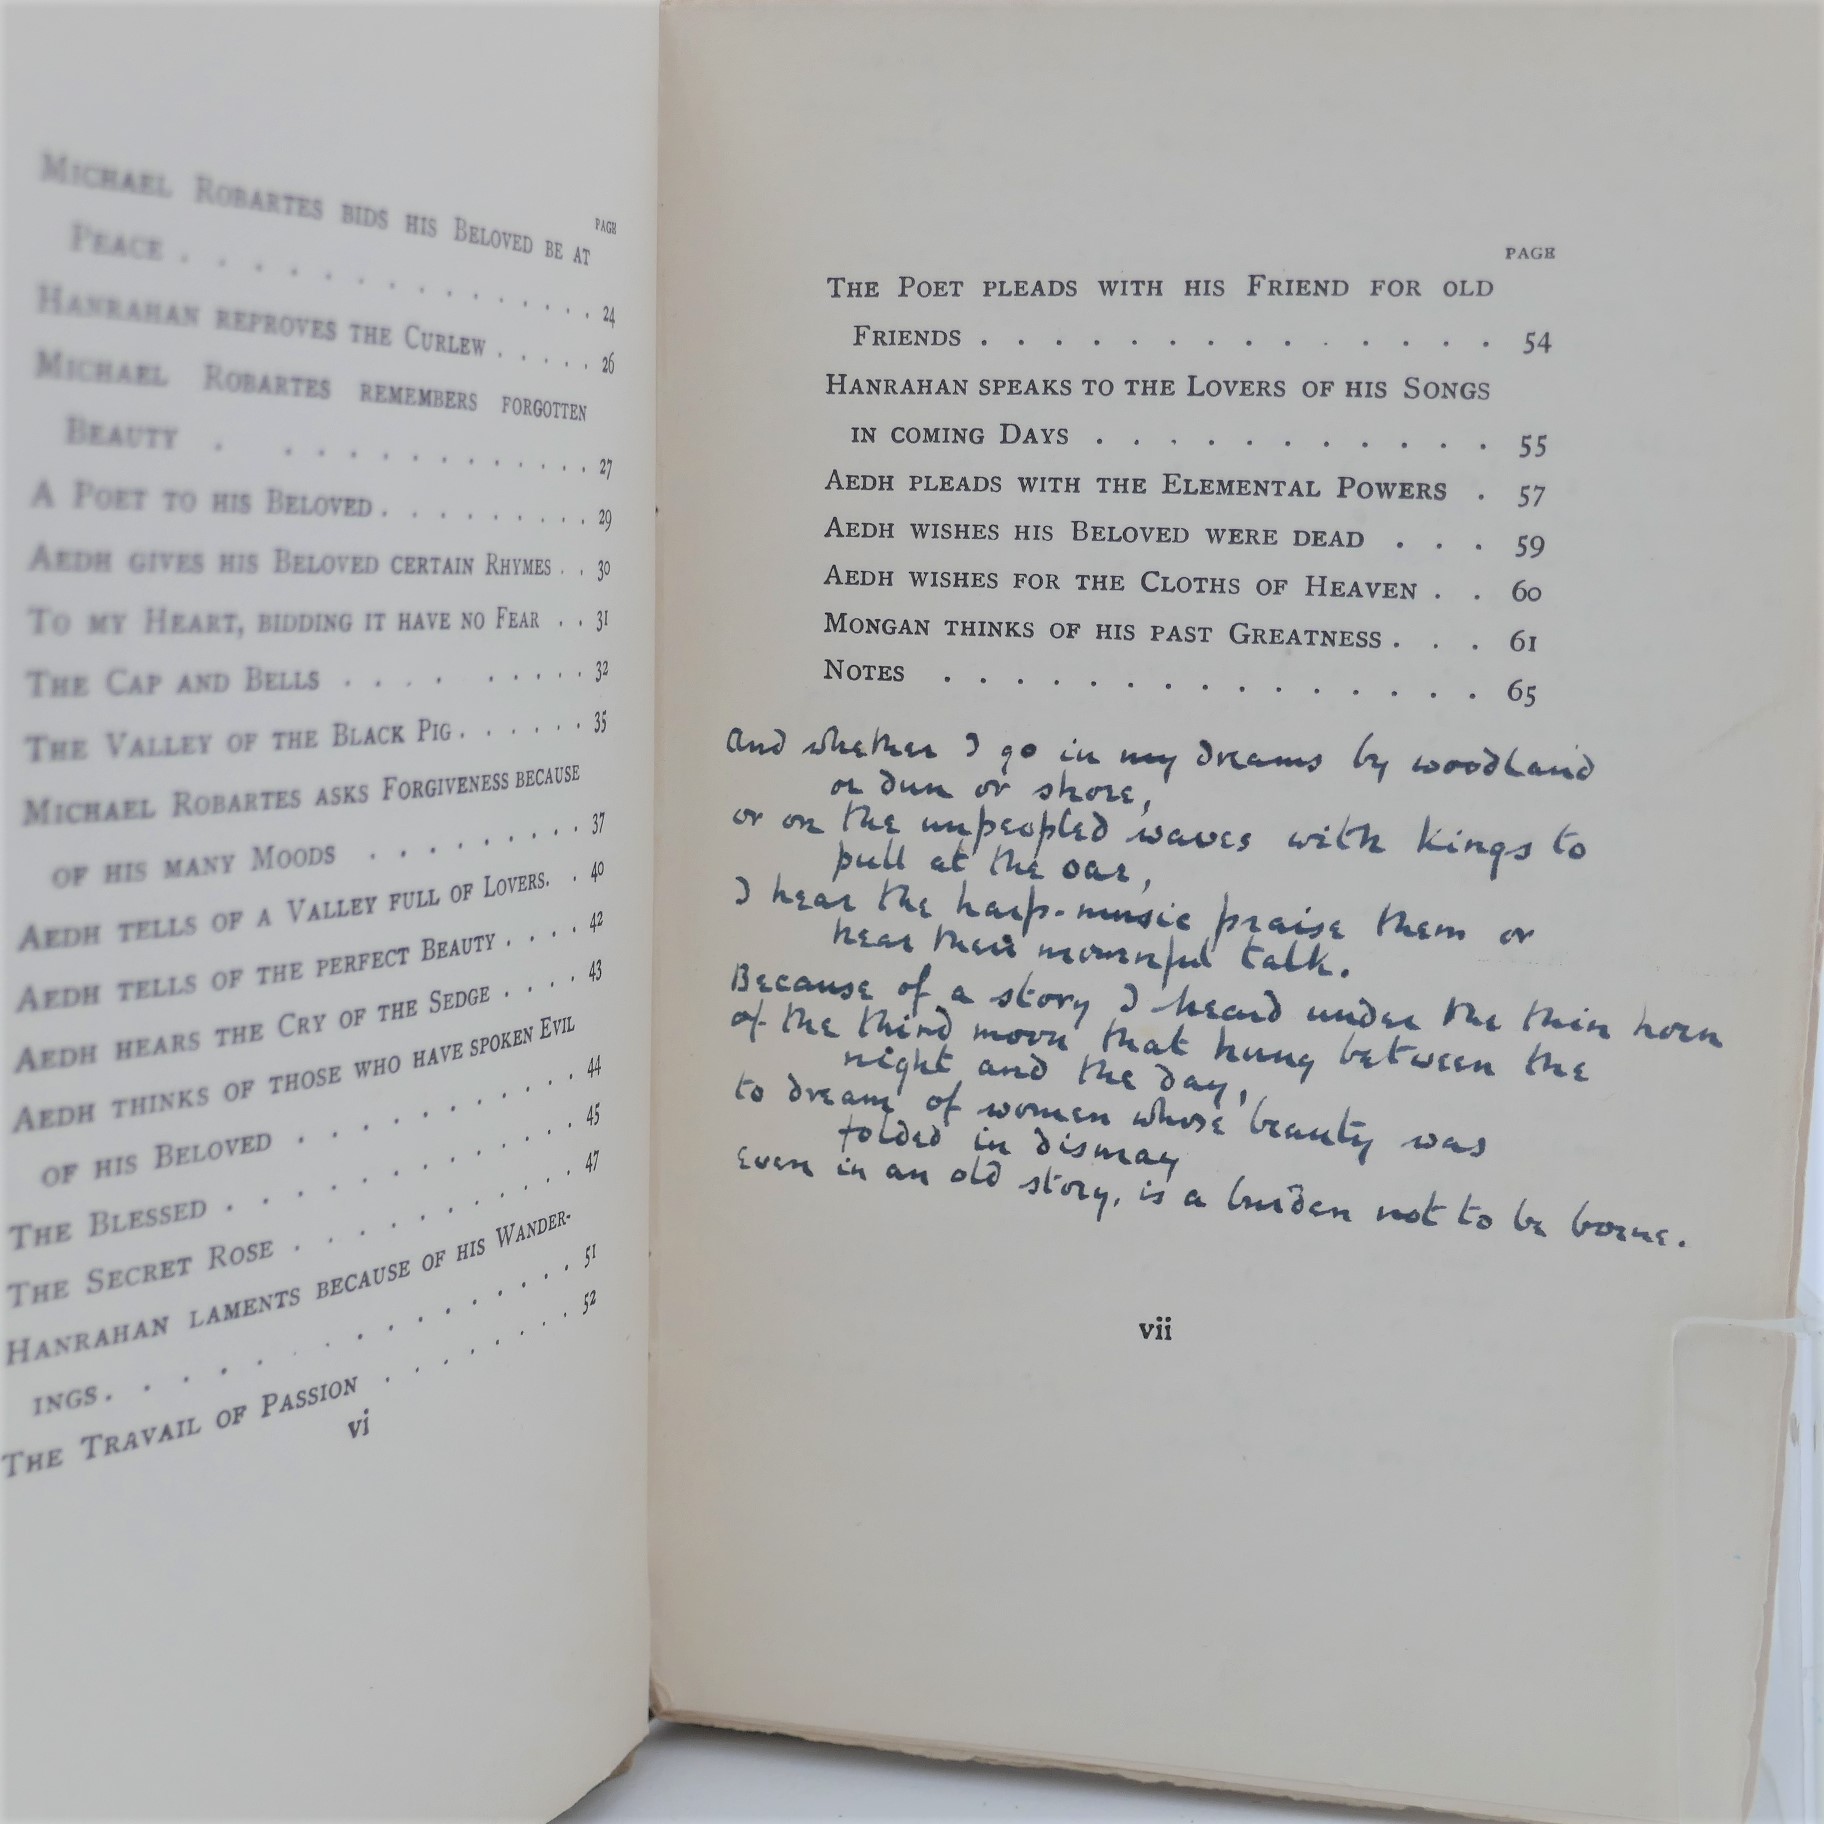 PAGE
MICHAEL ROBARTES BIDS HIS BELOVED BE AT
PEACE . . . . . . . . . . . . . 24
HANRAHAN REPROVES THE CURLEW . . . . . 26
MICHAEL ROBARTES REMEMBERS FORGOTTEN
BEAUTY . . . . . . . . . . . . 27
A POET TO HIS BELOVED . . . . . . . . . 29
AEDH GIVES HIS BELOVED CERTAIN RHYMES . . 30
TO MY HEART, BIDDING IT HAVE NO FEAR . . 31
THE CAP AND BELLS . . . . . . . . . 32
THE VALLEY OF THE BLACK PIG . . . . . . 35
MICHAEL ROBARTES ASKS FORGIVENESS BECAUSE
OF HIS MANY MOODS . . . . . . . . 37
AEDH TELLS OF A VALLEY FULL OF LOVERS. . 40
AEDH TELLS OF THE PERFECT BEAUTY . . . . 42
AEDH HEARS THE CRY OF THE SEDGE . . . . 43
AEDH THINKS OF THOSE WHO HAVE SPOKEN EVIL
OF HIS BELOVED . . . . . . . . . . 44
THE BLESSED . . . . . . . . . . . . 45
THE SECRET ROSE . . . . . . . . . . 47
HANRAHAN LAMENTS BECAUSE OF HIS WANDER-
INGS . . . . . . . . . . . . . 51
THE TRAVAIL OF PASSION . . . . . . . 52
vi
PAGE
THE POET PLEADS WITH HIS FRIEND FOR OLD
FRIENDS . . . . . . . . . . . . . . 54
HANRAHAN SPEAKS TO THE LOVERS OF HIS SONGS
IN COMING DAYS . . . . . . . . . . . 55
AEDH PLEADS WITH THE ELEMENTAL POWERS . 57
AEDH WISHES HIS BELOVED WERE DEAD . . . 59
AEDH WISHES FOR THE CLOTHS OF HEAVEN . . 60
MONGAN THINKS OF HIS PAST GREATNESS . . . 61
NOTES . . . . . . . . . . . . . . . 65
And whether I go in my dreams by woodland
or dun or shore,
or on the unpeopled waves with kings to
pull at the oar,
I hear the harp-music praise them or
hear their mournful talk.
Because of a story I heard under the thin horn
of the third moon that hung between the
night and the day,
to dream of women whose beauty was
folded in dismay
even in an old story, is a burden not to be borne.
vii